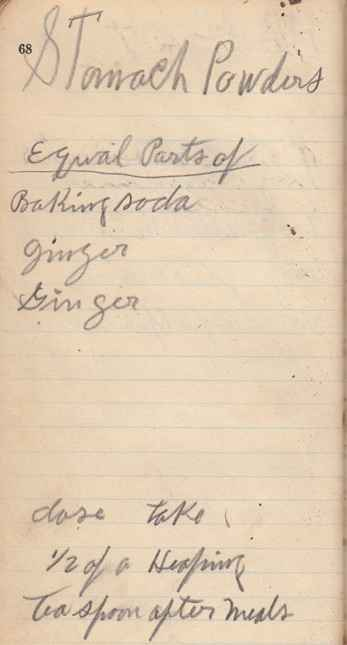 68
Stomach Powders
Equal Parts of
Baking soda
ginger
Ginger
dose take
1/2 of a Heaping
Tea spoon after meals